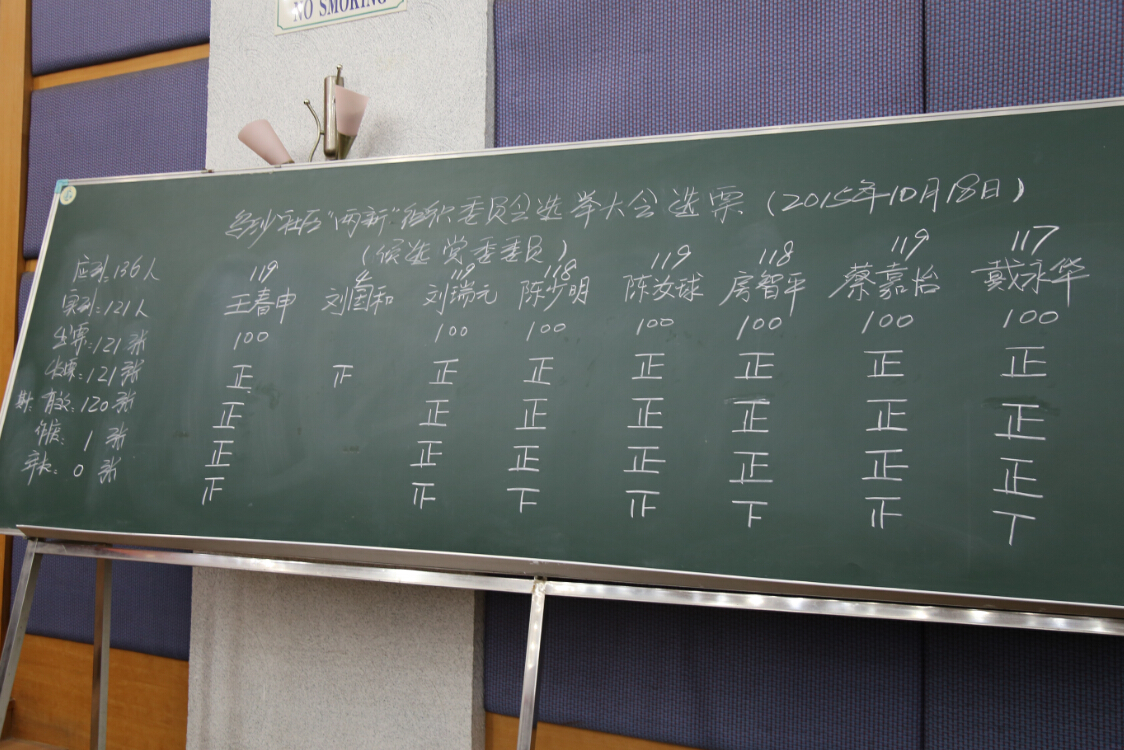 NO SMOKING
社区"两新"组织委员会选举大会选票(2015年10月18日)
(候选党委委员)
应到:136人
实到:121人
发票:121张
收票:121张
其中:有效:120张
作废:1张
弃权:0张
119 119 118 119 118 119 117
王春申 刘国和 刘瑞元 陈少明 陈汝球 房智平 蔡嘉怡 戴永华
100 100 100 100 100 100 100
正 正 正 正 正 正 正 正
正 正 正 正 正 正 正
正 正 正 正 正 正 正